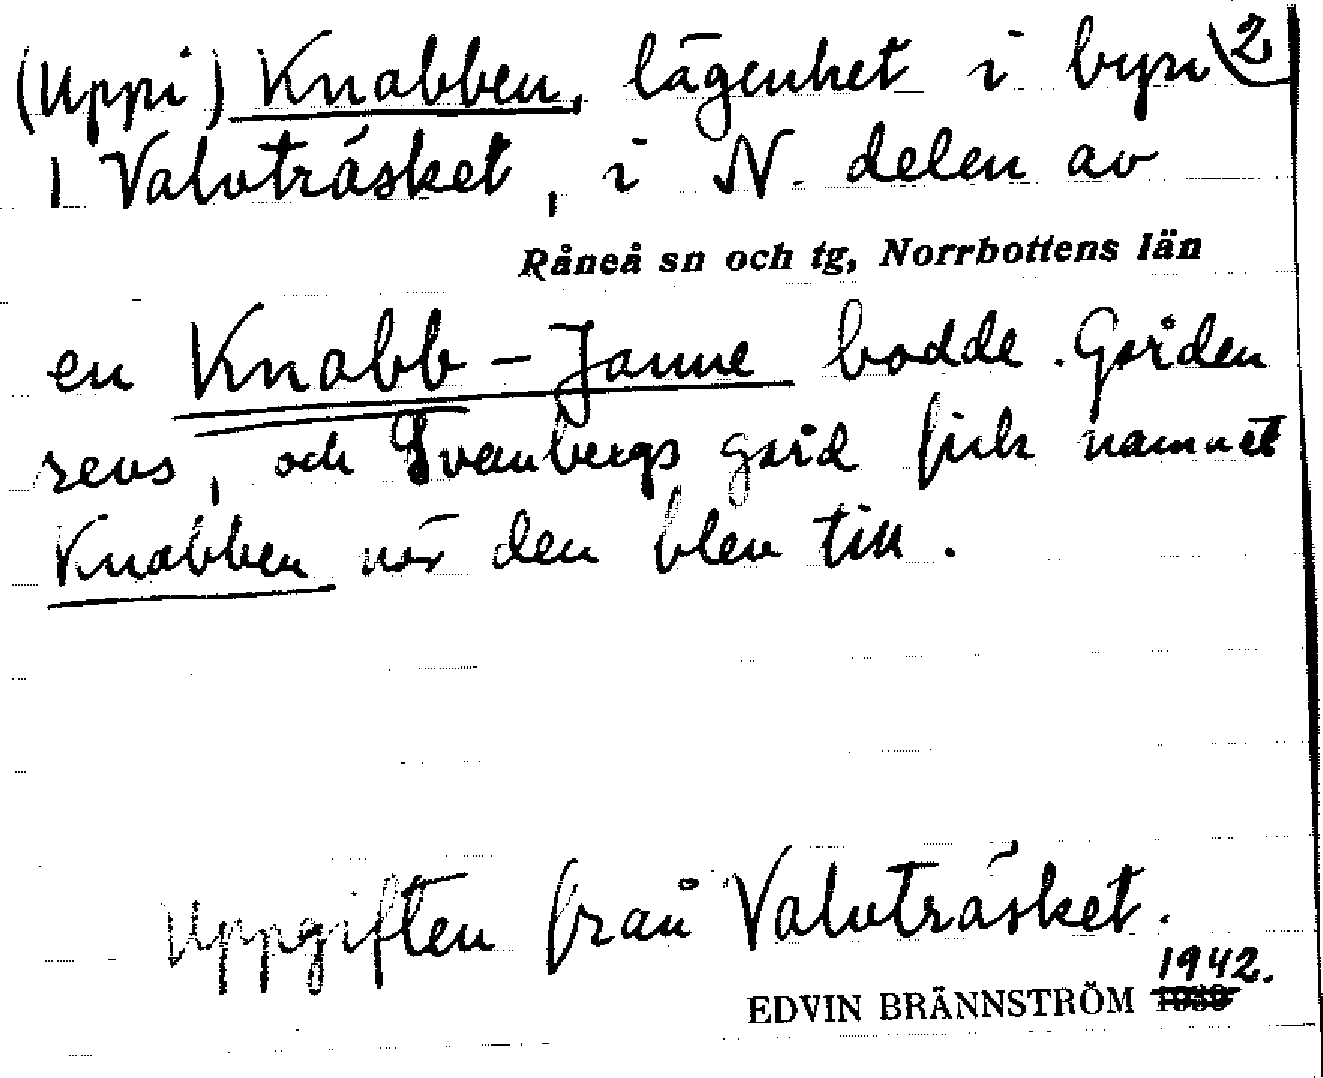 (Uppi) Knabben, lägenhet i byn 2
1 Valvträsket, i N. delen av
Råneå sn och tg, Norrbottens län
en Knabb-Janne bodde. Gården
revs, och Svanbergs gård fick namnet
Knabben när den blev till.
Uppgiften från Valvträsket.
1942.
EDVIN BRÄNNSTRÖM 1939